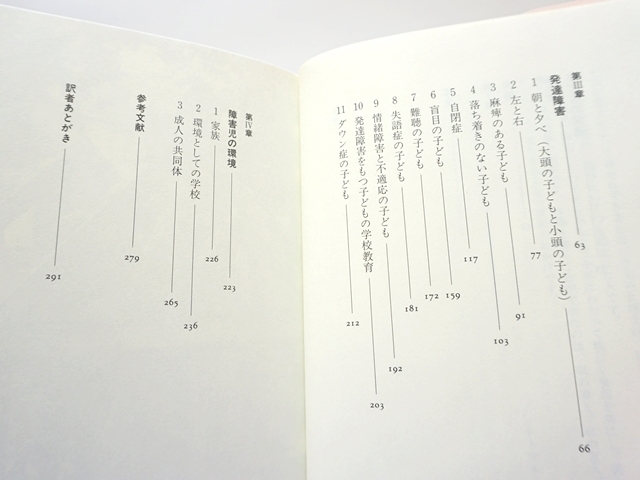 第Ⅲ章
発達障害 63
1 朝と夕べ（大頭の子どもと小頭の子ども） 66
2 左と右 77
3 麻痺のある子ども 91
4 落ち着きのない子ども 103
5 自閉症 117
6 盲目の子ども 159
7 難聴の子ども 172
8 失語症の子ども 181
9 情緒障害と不適応の子ども 192
10 発達障害をもつ子どもの学校教育 203
11 ダウン症の子ども 212
第Ⅳ章
障害児の環境 223
1 家族 226
2 環境としての学校 236
3 成人の共同体 265
参考文献 279
訳者あとがき 291